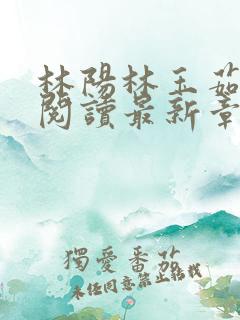 林陽林玉茹
閱讀最新章
獨愛番茄
未经同意禁止转载